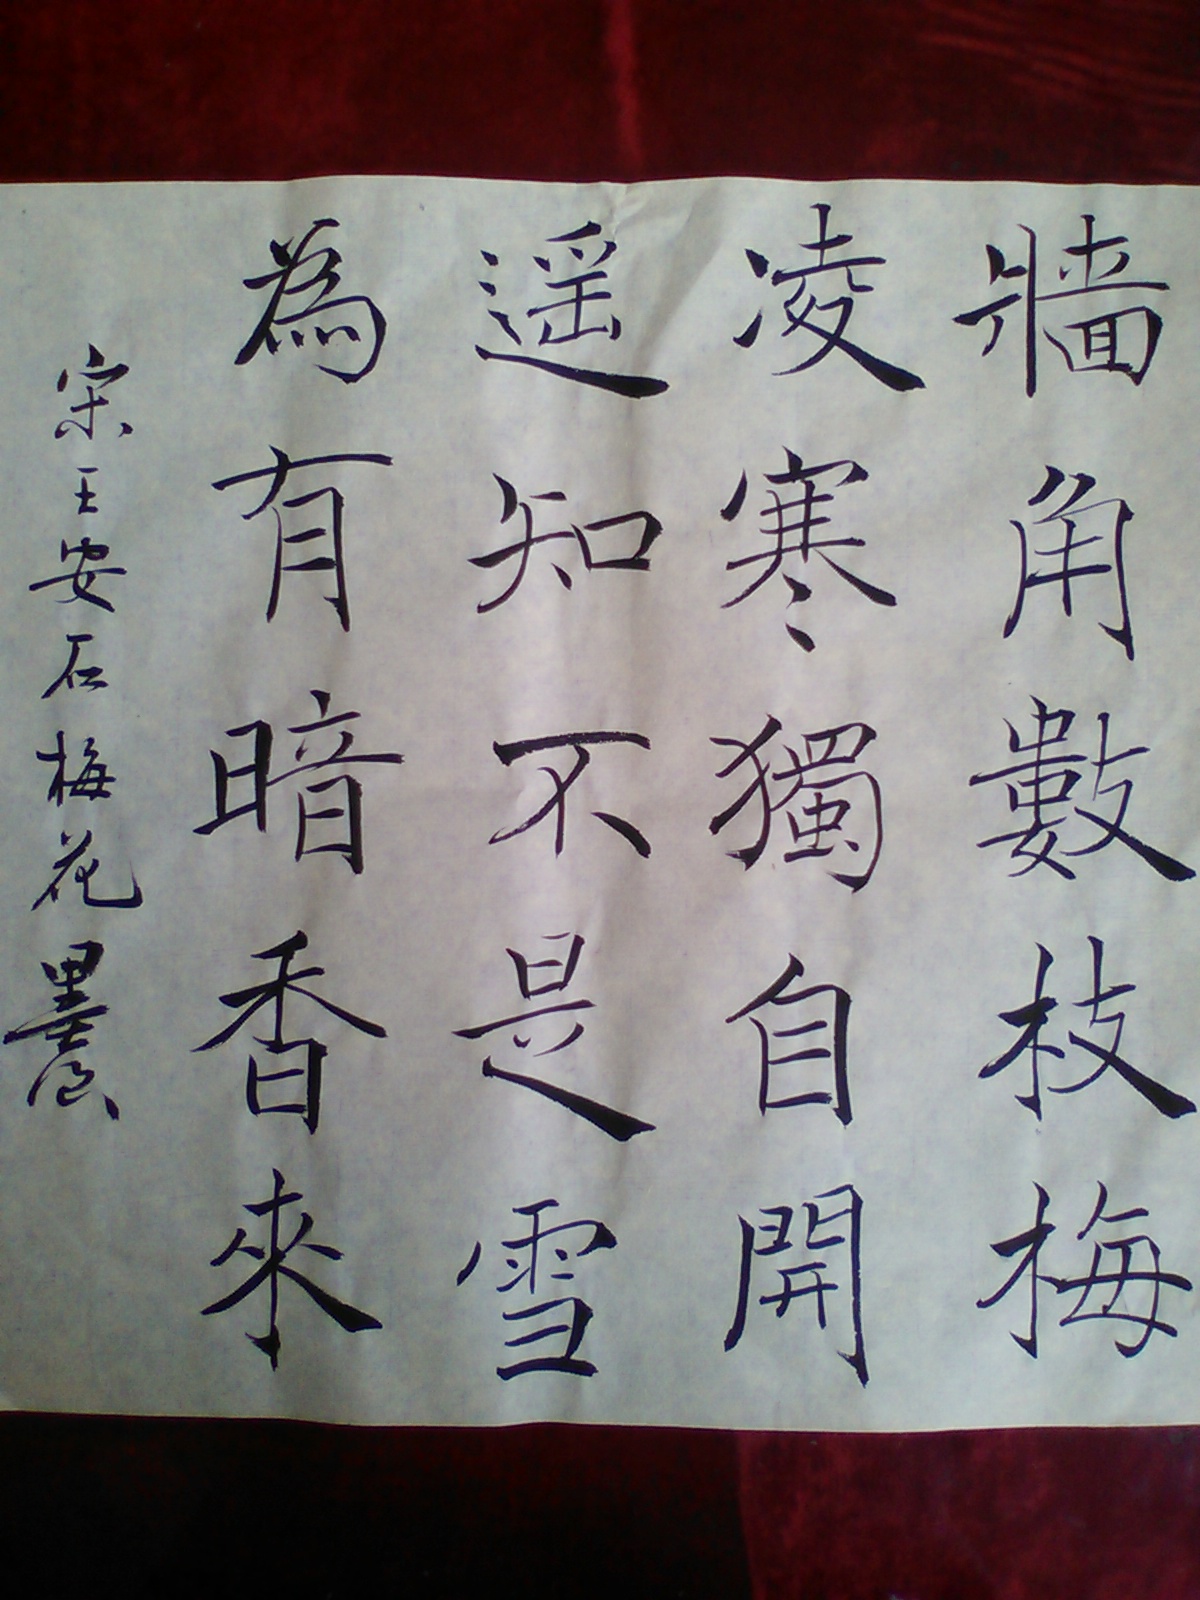 牆角數枝梅
凌寒獨自開
遥知不是雪
為有暗香來
宋王安石梅花墨